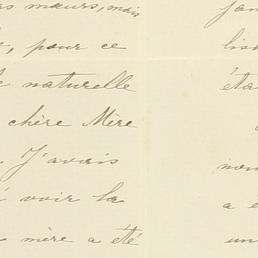 mœurs, mais
, pour ce
naturelle
chère Mère
. J'avais
voir la
mère a été
jam
lis
éta
nou
a e
un